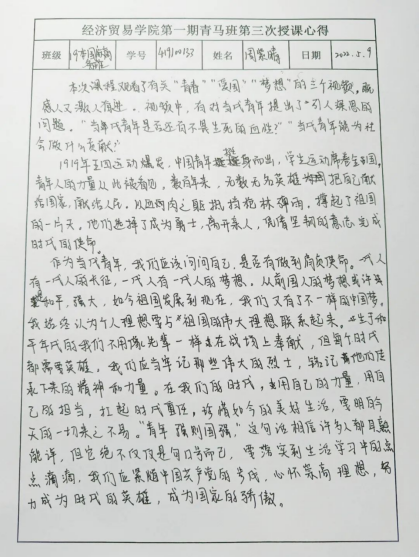 经济贸易学院第一期青马班第三次授课心得
班级 19 学号 419100133 姓名 周 日期 2022.5.9
本次课程观看了有关"青春""爱国""梦想"的三个视频，既
感人又激人奋进。视频中，有对当代青年提出了引人深思的
问题。"当年代青年是否还有不畏生死的血性？""当代青年能为社
会做什么贡献？"
1919年五四运动爆发，中国青年挺身而出，学生运动席卷全国，
青年人的力量从此被看见，数百年来，无数无名英雄把自己献
给国家，献给人民，以血肉之躯抵挡枪林弹雨，撑起了祖国
的一片天。他们选择了成为勇士，离开亲人，凭着坚韧的意志完成
时代的使命。
作为当代青年，我们应该问问自己，是否有做到肩负使命。一代人
有一代人的长征，一代人有一代人的梦想，从前国人的梦想或许是
和平，强大，如今祖国发展到现在，我们又有了不一样的中国梦。
我始终认为个人理想要与祖国的伟大理想联系起来。生于和
平年代的我们不用像先辈一样去在战场上奉献，但每个时代
都需要英雄，我们应当牢记那些伟大的烈士，铭记着他们传
承下来的精神和力量。在我们的时代，用自己的力量，用自
己的担当，扛起时代责任，珍惜如今的美好生活，要明白今
天的一切来之不易。"青年强则国强，"这句话相信许多人都耳熟
能详，但它绝不仅仅是句口号而已，要落实到生活学习中的点
点滴滴，我们应紧随中国共产党的步伐，心怀崇高理想，努
力成为时代的英雄，成为国家的骄傲。